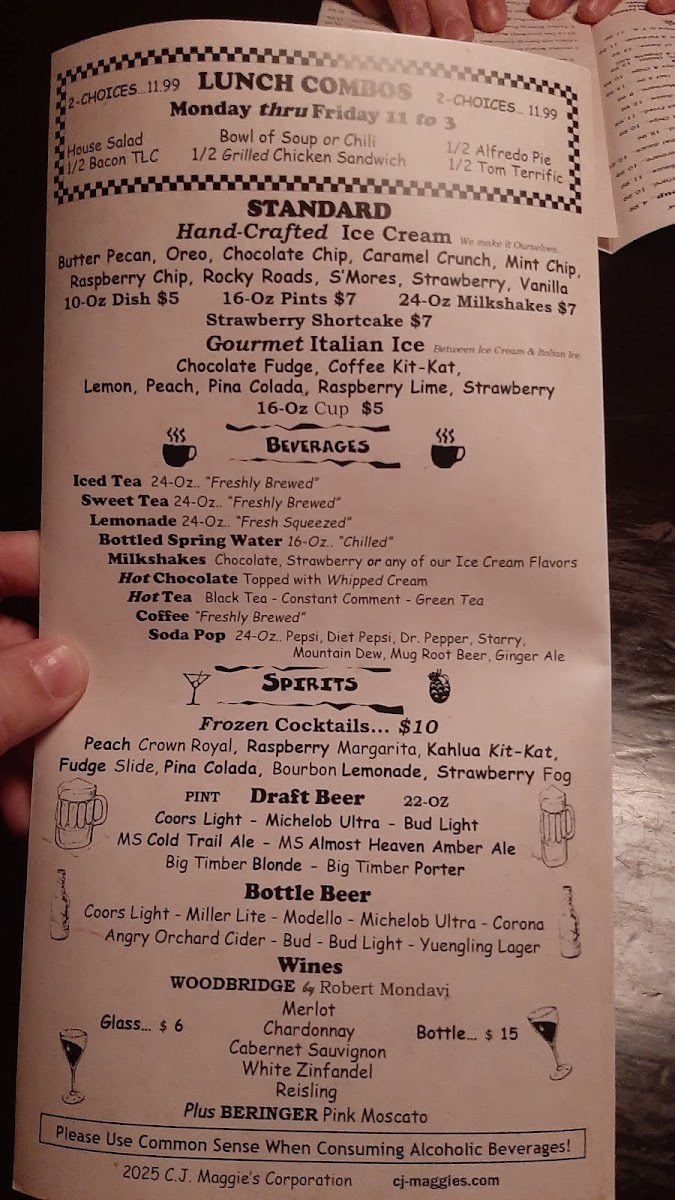 2-CHOICES...11.99 LUNCH COMBOS 2-CHOICES... 11.99
Monday thru Friday 11 to 3
House Salad Bowl of Soup or Chili 1/2 Alfredo Pie
1/2 Bacon TLC 1/2 Grilled Chicken Sandwich 1/2 Tom Terrific
STANDARD
Hand-Crafted Ice Cream We make it Ourselves..
Butter Pecan, Oreo, Chocolate Chip, Caramel Crunch, Mint Chip,
Raspberry Chip, Rocky Roads, S'Mores, Strawberry, Vanilla
10-Oz Dish $5 16-Oz Pints $7 24-Oz Milkshakes $7
Strawberry Shortcake $7
Gourmet Italian Ice Between Ice Cream & Italian Ice
Chocolate Fudge, Coffee Kit-Kat,
Lemon, Peach, Pina Colada, Raspberry Lime, Strawberry
16-Oz Cup $5
BEVERAGES
Iced Tea 24-Oz.. "Freshly Brewed"
Sweet Tea 24-Oz.. "Freshly Brewed"
Lemonade 24-Oz.. "Fresh Squeezed"
Bottled Spring Water 16-Oz.. "Chilled"
Milkshakes Chocolate, Strawberry or any of our Ice Cream Flavors
Hot Chocolate Topped with Whipped Cream
Hot Tea Black Tea - Constant Comment - Green Tea
Coffee "Freshly Brewed"
Soda Pop 24-Oz.. Pepsi, Diet Pepsi, Dr. Pepper, Starry,
Mountain Dew, Mug Root Beer, Ginger Ale
SPIRITS
Frozen Cocktails... $10
Peach Crown Royal, Raspberry Margarita, Kahlua Kit-Kat,
Fudge Slide, Pina Colada, Bourbon Lemonade, Strawberry Fog
PINT Draft Beer 22-OZ
Coors Light - Michelob Ultra - Bud Light
MS Cold Trail Ale - MS Almost Heaven Amber Ale
Big Timber Blonde - Big Timber Porter
Bottle Beer
Coors Light - Miller Lite - Modello - Michelob Ultra - Corona
Angry Orchard Cider - Bud - Bud Light - Yuengling Lager
Wines
WOODBRIDGE by Robert Mondavi
Merlot
Glass... $ 6 Chardonnay Bottle... $ 15
Cabernet Sauvignon
White Zinfandel
Reisling
Plus BERINGER Pink Moscato
Please Use Common Sense When Consuming Alcoholic Beverages!
2025 C.J. Maggie's Corporation cj-maggies.com